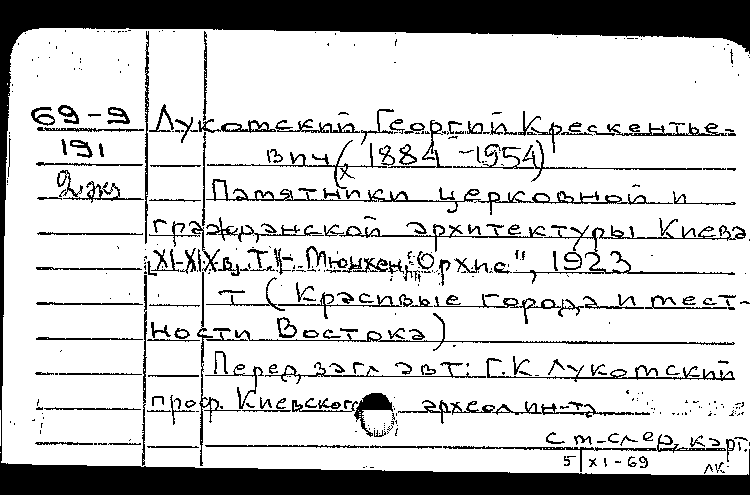 69-9 Лукомский, Георгий Крескентье-
191 вич (х 1884 - 1954)
2 экз Памятники церковной и
гражданской архитектуры Киева
XI-XIXв. Т.1-. Мюнхен, "Орхис", 1923
т (Красивые города и мест-
ности Востока)
Перед загл авт: Г.К. Лукомский
проф. Киевского археол ин-та
см-след. карт.
5|XI-69 ЛК